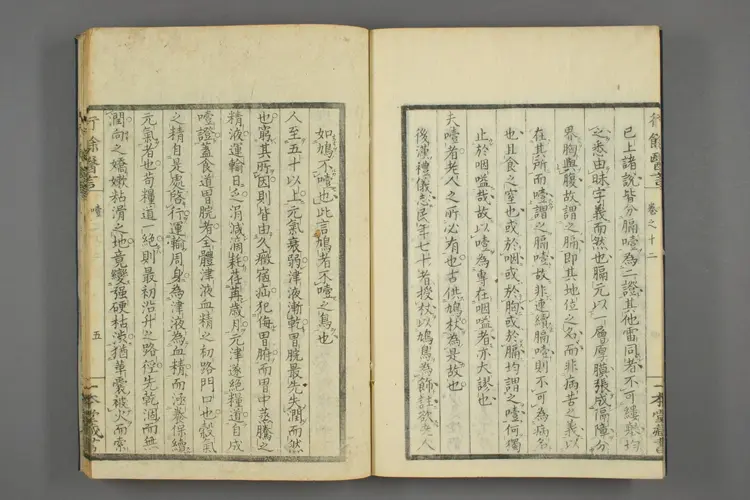 行餘醫言 卷之十二
已上諸說皆分膈噎為二證其他雷同者不可縷擧均
之悉由昧字義而然也膈元以一層厚膜張成隔障分
界胸與腹故謂之膈即其地位之名而非病苦之義以
在其所而噎謂之膈噎故非連續膈噎則不可為病名
也且食之窒也或於咽或於胸或於膈均謂之噎何獨
止於咽嗌哉故以噎為專在咽嗌者亦大謬也
夫噎者老人之所必有也古供鳩杖為是故也
後漢禮儀志民年七十者授杖以鳩鳥為飾註欲老人
一本堂藏書
如鳩不噎也此言鳩者不噎之鳥也
人至五十以上元氣衰弱津液漸乾胃脘最先失潤而然
也竊其所因則皆由久癥宿疝犯侮胃腑而胃中蒸騰之
精液運輸日之消減滴耗荏苒歲月元津遂絕糧道自成
噎證蓋食道胃脘者全體津液血精之初路門口也穀氣
之精自是處啓行運輸周身為津液為血精而涵養保續
元氣者也苟糧道一絕則最初洽升之路徑先乾涸而無
潤向之嬌嫩粘滑之地竟變強硬枯澁猶革囊被火而索
行餘醫言 噎 五 一本堂藏書